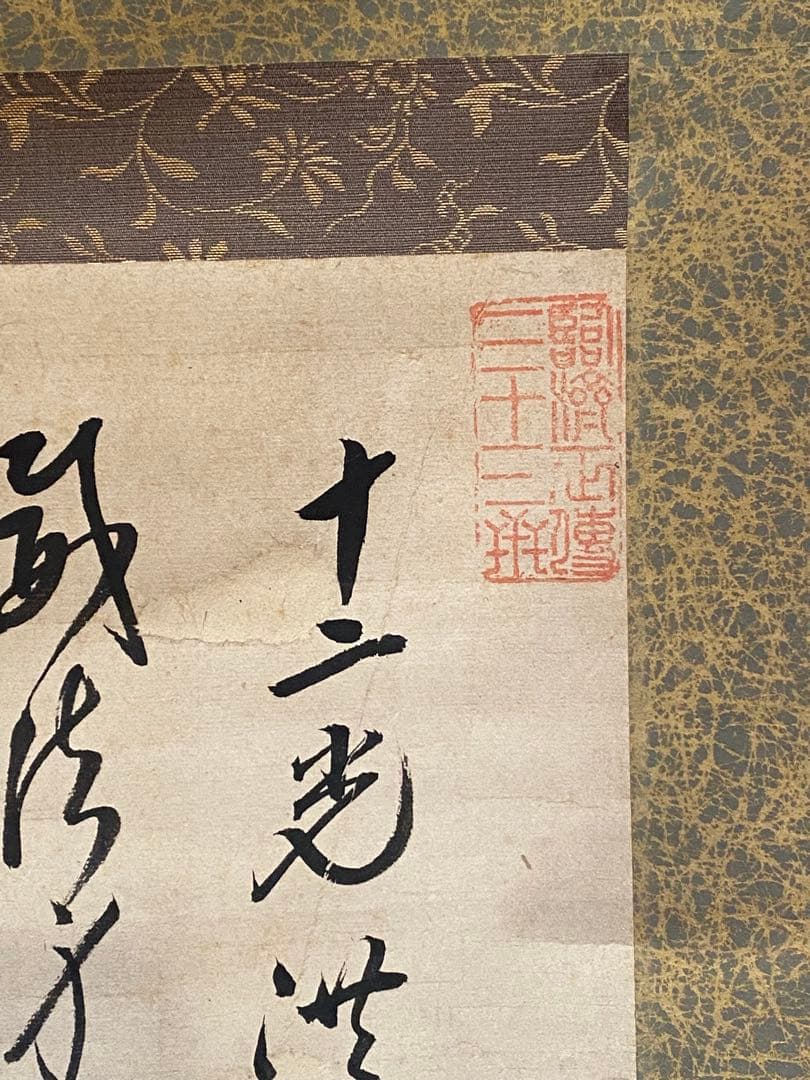 臨濟正傳
三十三世
十二光洪
法身